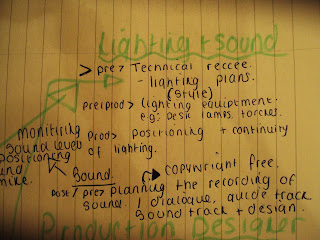 Lighting + sound
> pre > Technical reccee.
- lighting plans.
(style)
preiprod > lighting equiptment.
e.g. Desk lamps, torches.
prod > positioning + continuity
of lighting.
monitiring
sound levels
positioning
mike.
Sound → copywright free.
post/pre > planning the recording of
sound. / dialogue, guide track
sound track + design.
Production Designer